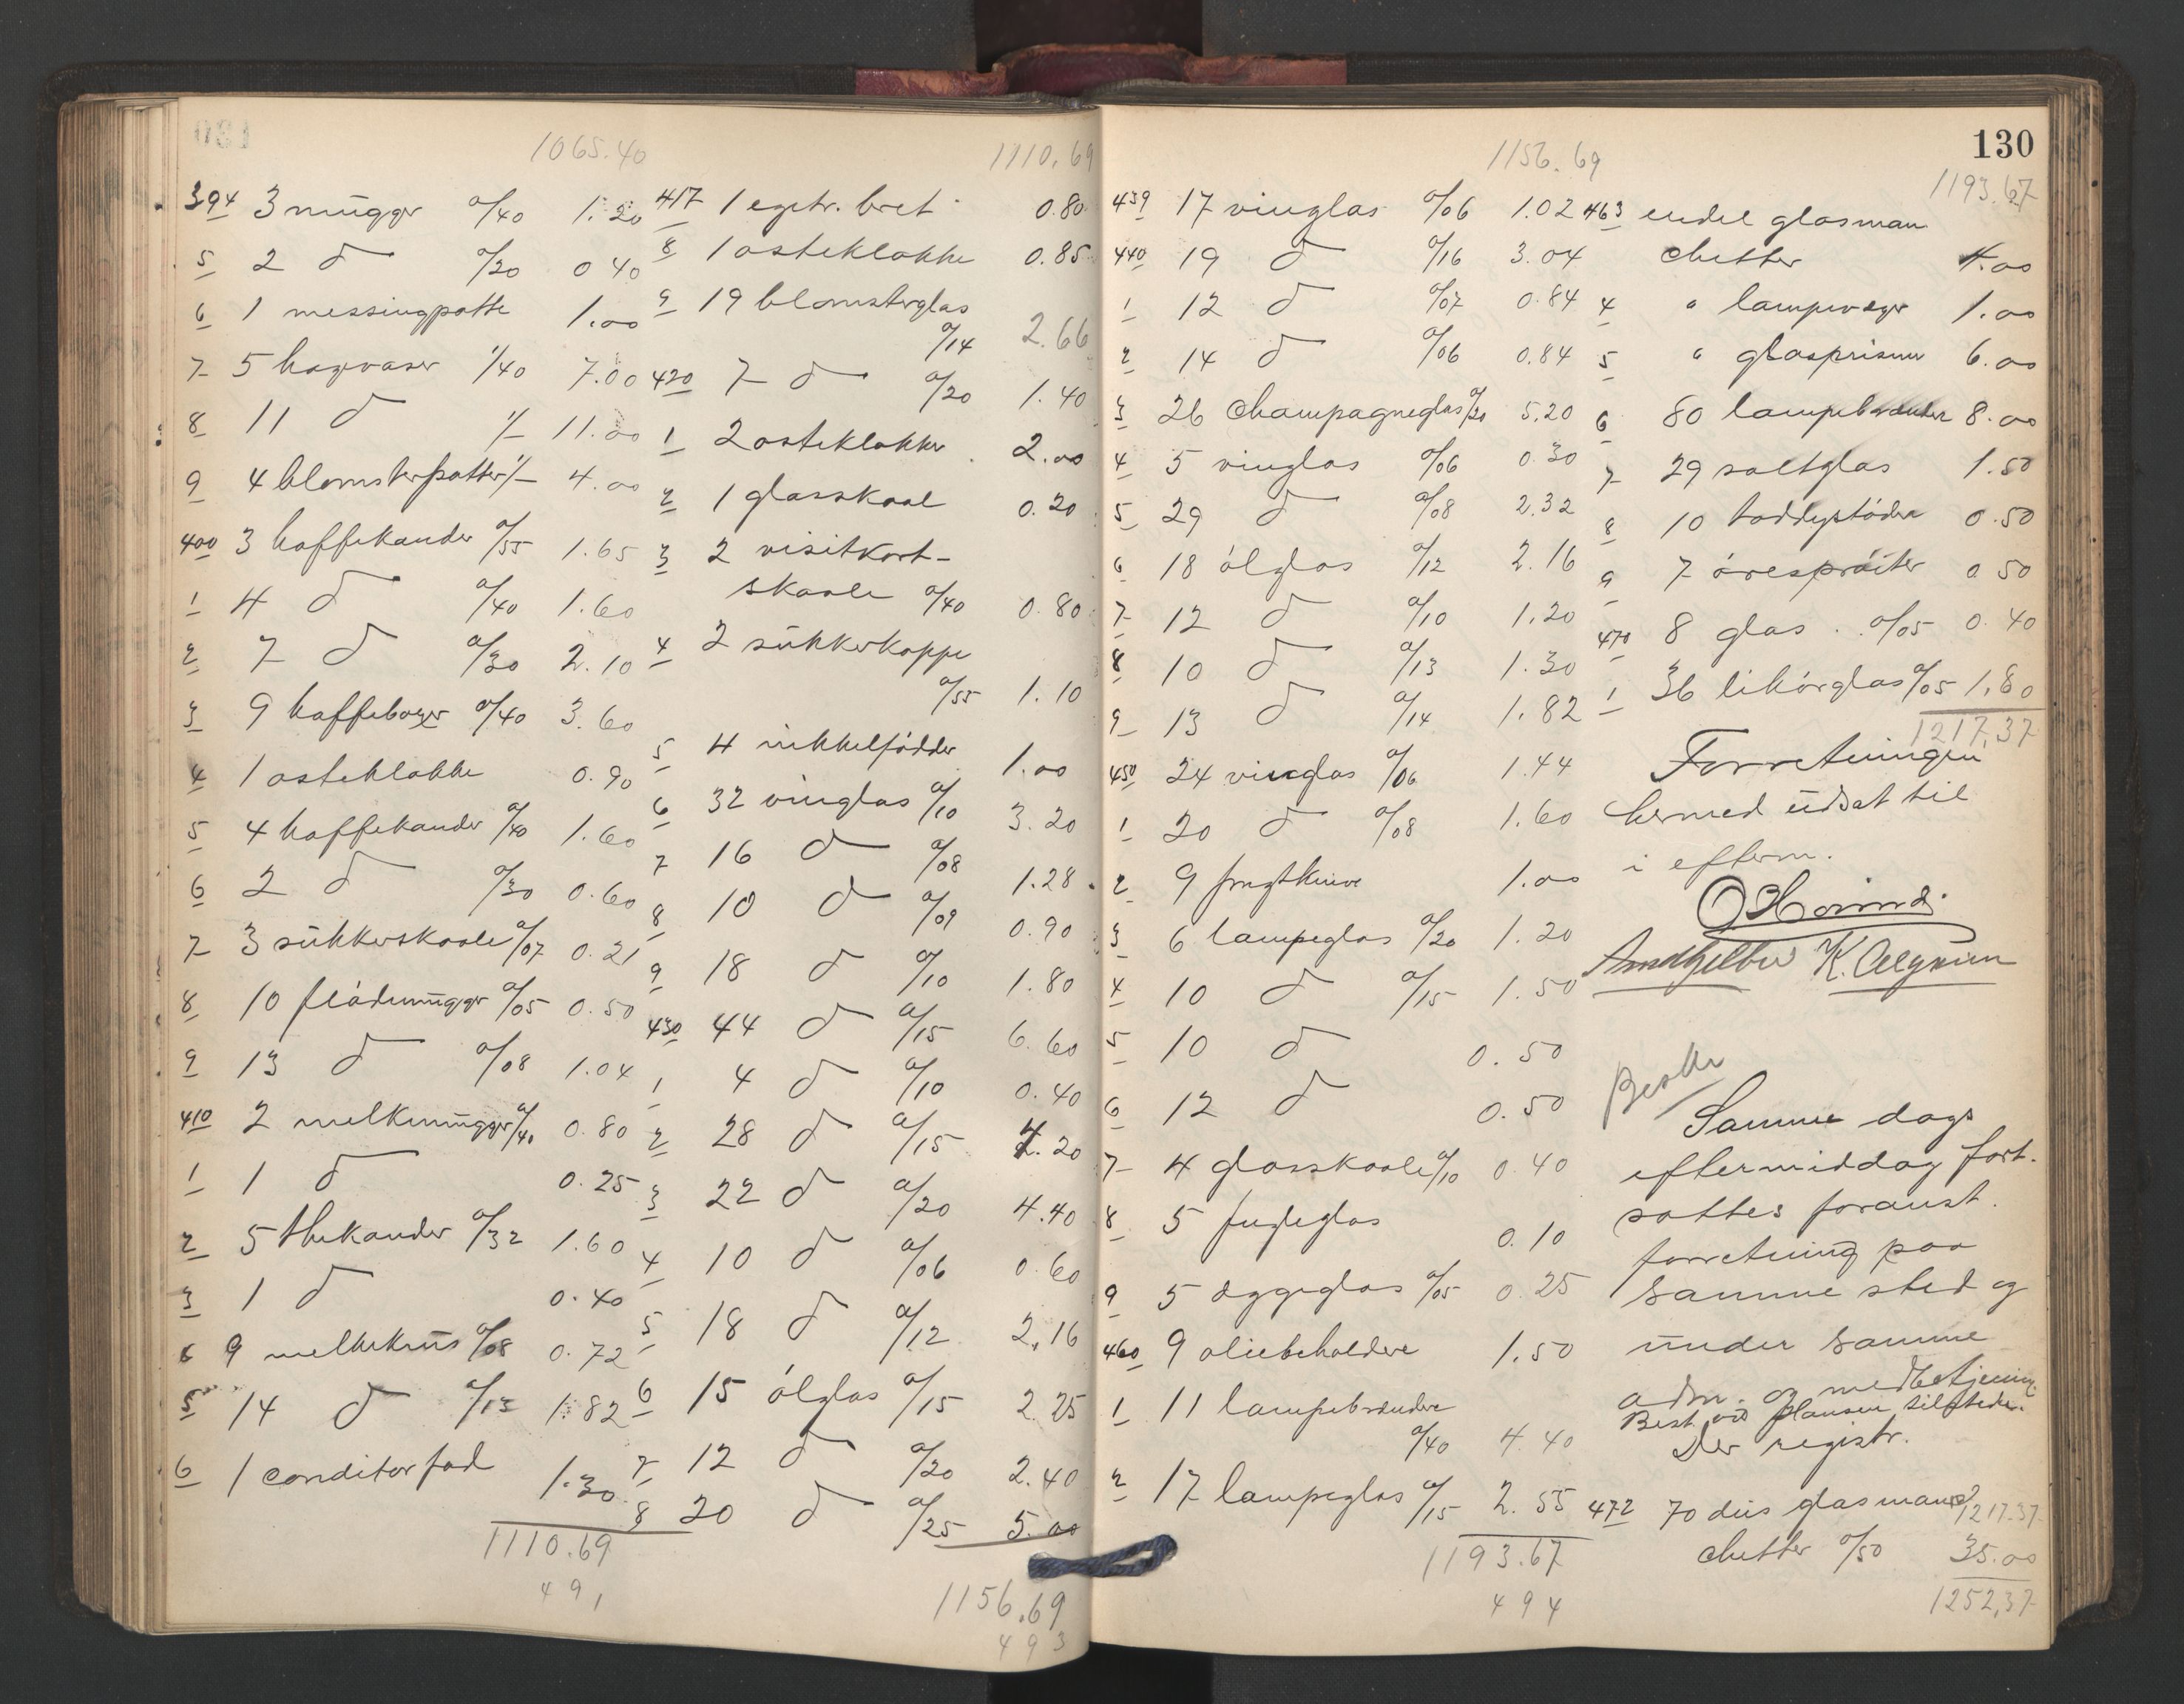 1065.40
394 3 mügger a/40 1.20
5 2 d a/20 0 40
6 1 messingpotte 1.00
7 5 hagevaser 1/40 7.00
8 11 d 1/- 11.00
9 4 blomsterpotter 1/- 4.00
400 3 kaffekander a/55 1.65
1 4 d a/40 1.60
2 7 d a/30 2.10
3 9 kaffeboxer a/40 3.60
4 1 osteklokke 0.90
5 4 kaffekander a/40 1.60
6 2 d a/30 0.60
7 3 sükkerskaale a/07 0.21
8 10 flødemügger a/05 0.50
9 13 d a/08 1.04
410 2 melkemügger a/40 0.80
1 1 d 0.25
2 5 thekander a/32 1.60
3 1 d 0.40
4 9 melkekrüs a/08 0.72
5 14 d a/13 1.82
6 1 conditorfad 1.30
1110.69
491
1110.69
417 1 egetr. bret 0.80
8 1 osteklokke 0.85
9 19 blomsterglas
a/14 2.66
420 7 d a/20 1.40
1 2 osteklokker 2.00
2 1 glasskaal 0.20
3 2 visitkort-
skaale a/40 0.80
4 2 sükkerkoppe
a/55 1.10
5 4 nikkelfödder 1.00
6 32 vinglas a/10 3.20
7 16 d a/08 1.28
8 10 d a/09 0.90
9 18 d a/10 1.80
430 44 d a/15 6.60
1 4 d a/10 0.40
2 28 d a/15 4.20
3 22 d a/20 4.40
4 10 d a/06 0.60
5 18 d a/12 2.16
6 15 ölglas a/15 2.25
7 12 d a/20 2.40
8 20 d a/25 5.00
1156.69
493
130
1156.69
439 17 vinglas a/06 1.02
440 19 d a/16 3.04
1 12 d a/07 0.84
2 14 d a/06 0.84
3 26 champagneglas a/20 5.20
4 5 vinglas a/06 0.30
5 29 d a/08 2.32
6 18 ölglas a/12 2.16
7 12 d a/10 1.20
8 10 d a/13 1.30
9 13 d a/14 1.82
450 24 vinglas a/06 1.44
1 20 d a/08 1.60
2 9 frugtknive 1.00
3 6 lampeglas a/20 1.20
4 10 d a/15 1.50
5 10 d 0.50
6 12 d 0.50
7 4 glasskaale a/10 0.40
8 5 fugleglas 0.10
9 5 æggeglas a/05 0.25
460 9 oliebeholdere 1.50
1 11 lampebrændere
a/40 4.40
2 17 lampeglas a/15 2.55
1193.67
494
1193.67
463 endel glasman
chetter 4.00
4 " lampevæger 1.00
5 " glasprismer 6.00
6 80 lampebrændere 8.00
7 29 saltglas 1.50
8 10 toddystödere 0.50
9 7 öresprøiter 0 50
470 8 glas . a/05 0.40
1 36 likörglas a/05 1.80
1217.37
Forretningen
hermed üdsat til
i efterm.
Samme dags
eftermiddag fort-
sattes foranst.
forretning paa
samme sted og
ünder samme
adm. og medbetjening
Best. ved Hansen tilstede.
Der registr.
472 70 düs glasman 1217.37
chetter a/50 35.00
1252,37